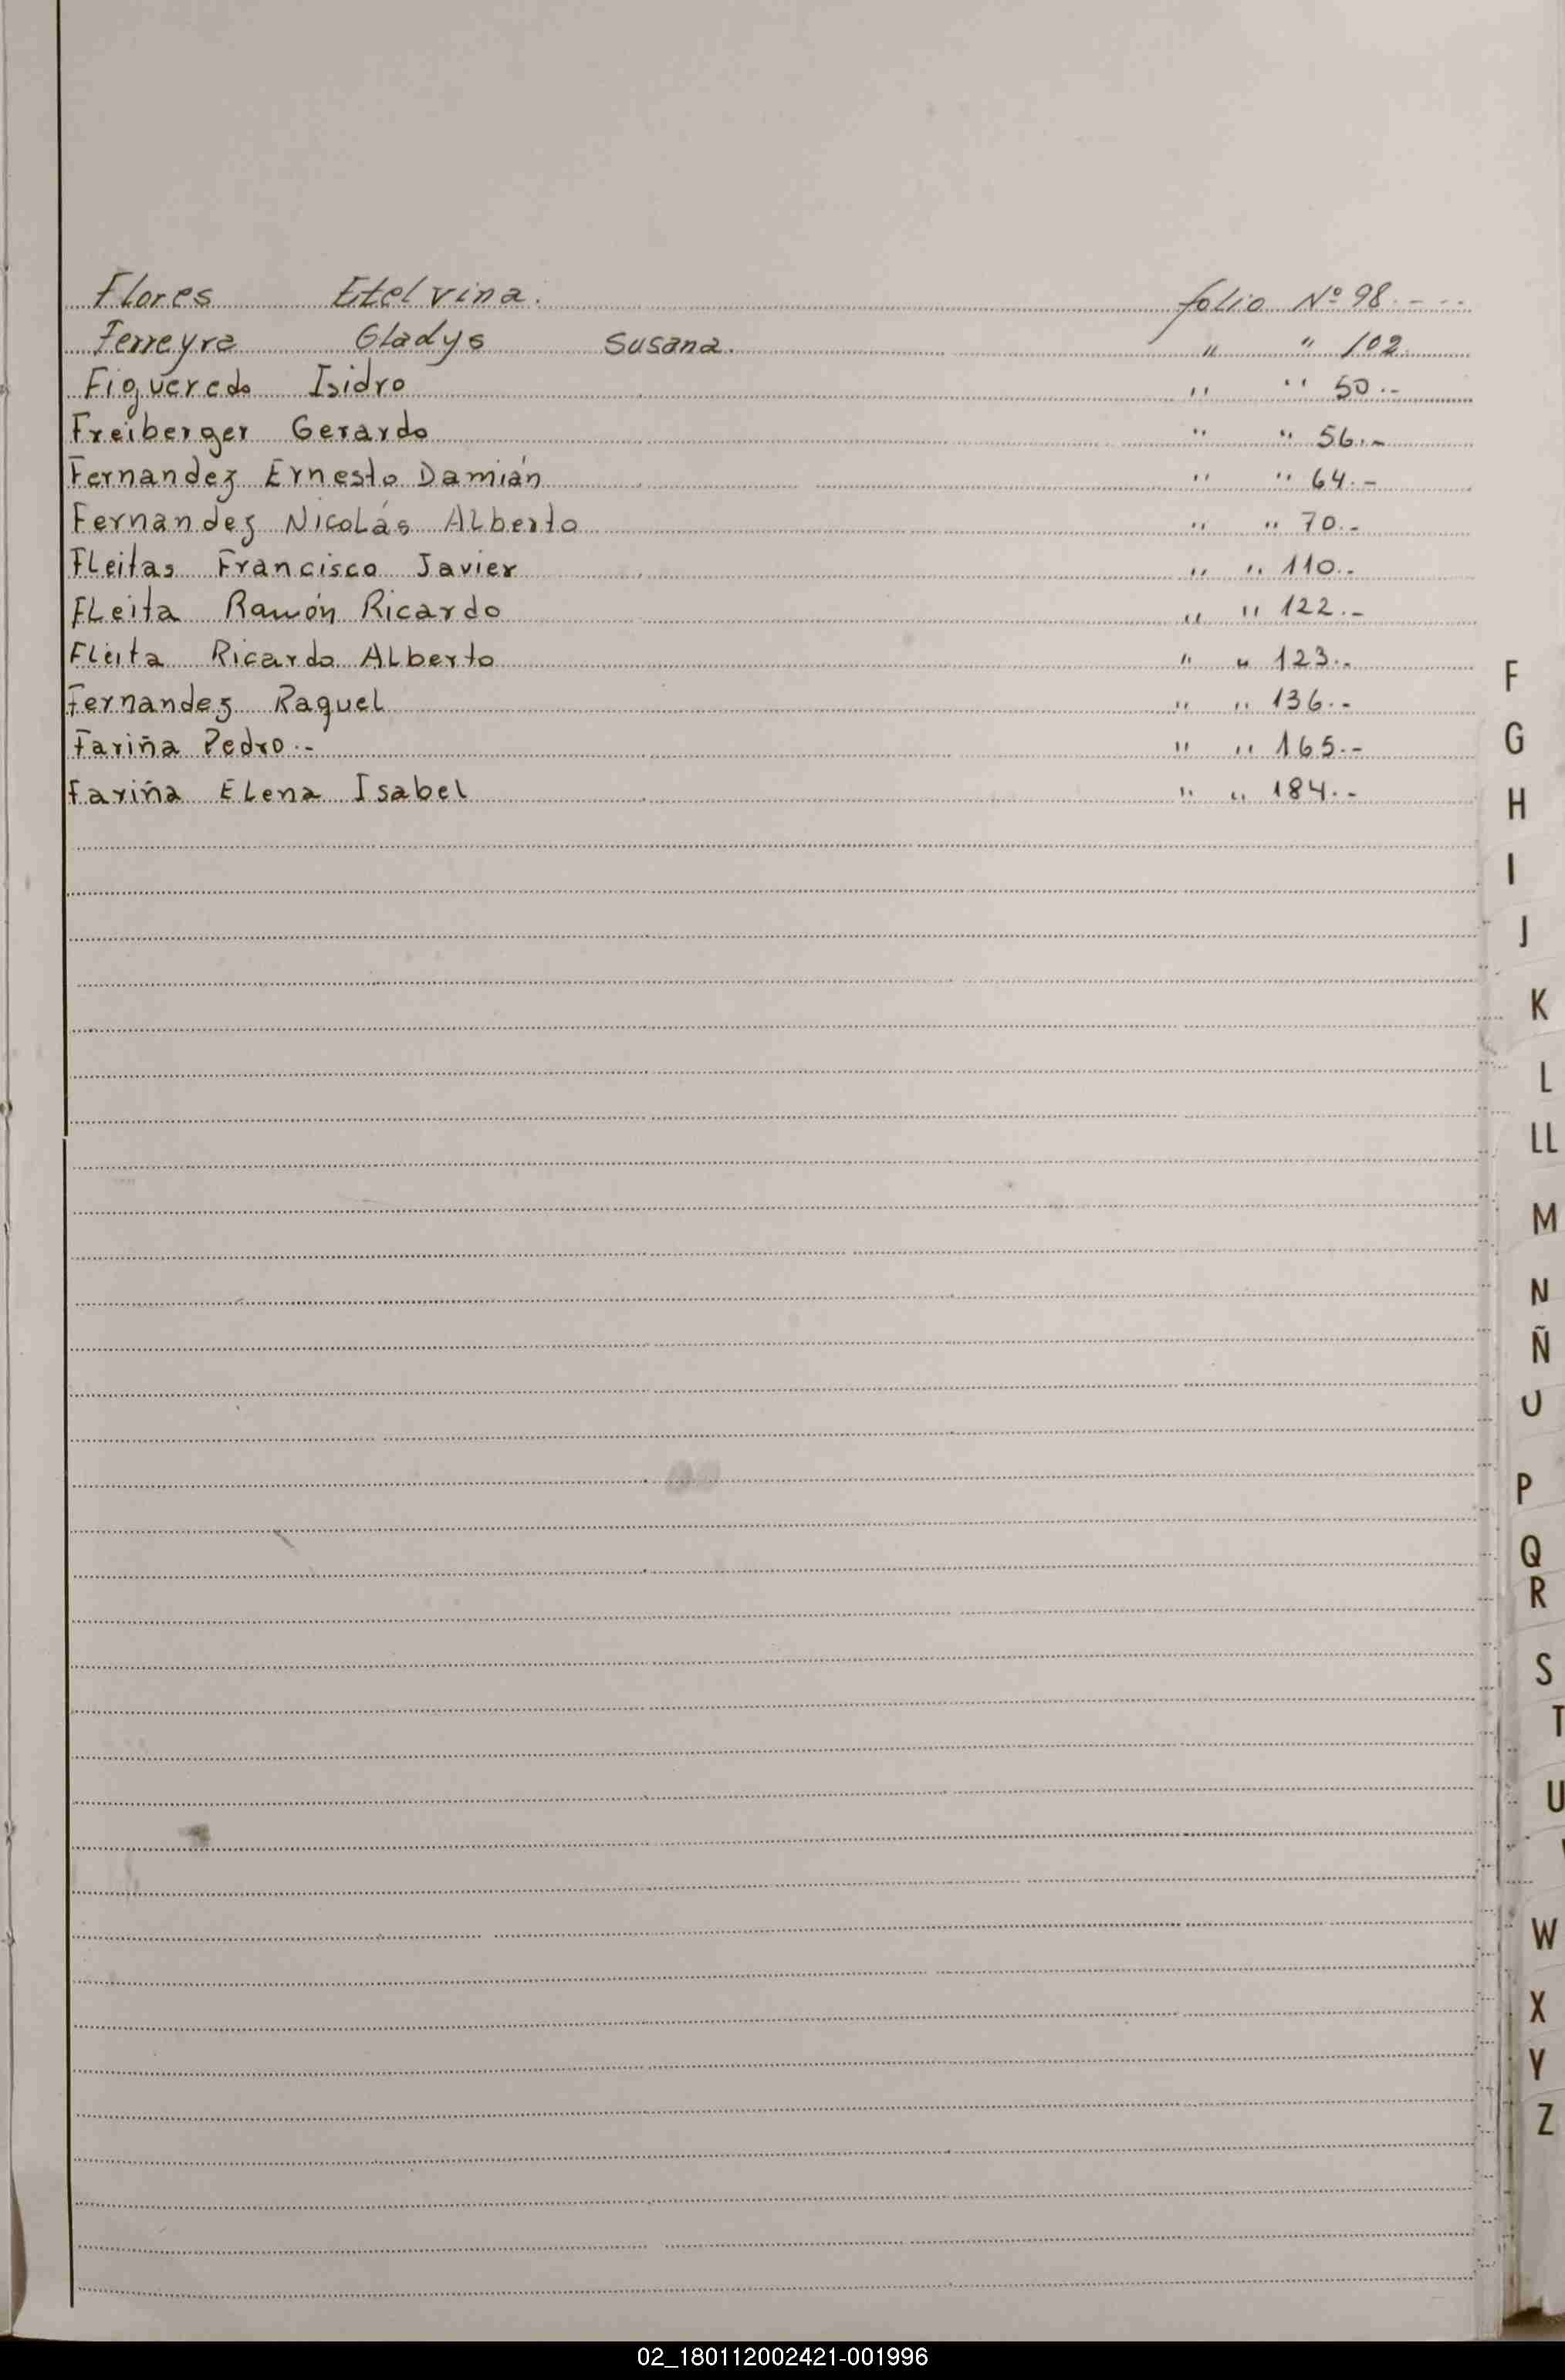 Flores Etelvina. folio Nº 98.- --
Ferreyra Gladys Susana. " " 102
Figueredo Isidro " " 50.-
Freiberger Gerardo " " 56.-
Fernandez Ernesto Damián " " 64.-
Fernandez Nicolás Alberto " " 70.-
Fleitas Francisco Javier " " 110.-
Fleita Ramón Ricardo " " 122.-
Fleita Ricardo Alberto " " 123.-
Fernandez Raquel " " 136.-
Fariña Pedro.- " " 165.-
Fariña Elena Isabel " " 184.-
F
G
H
I
J
K
L
LL
M
N
Ñ
O
P
Q
R
S
T
U
W
X
Y
Z
02_180112002421-001996